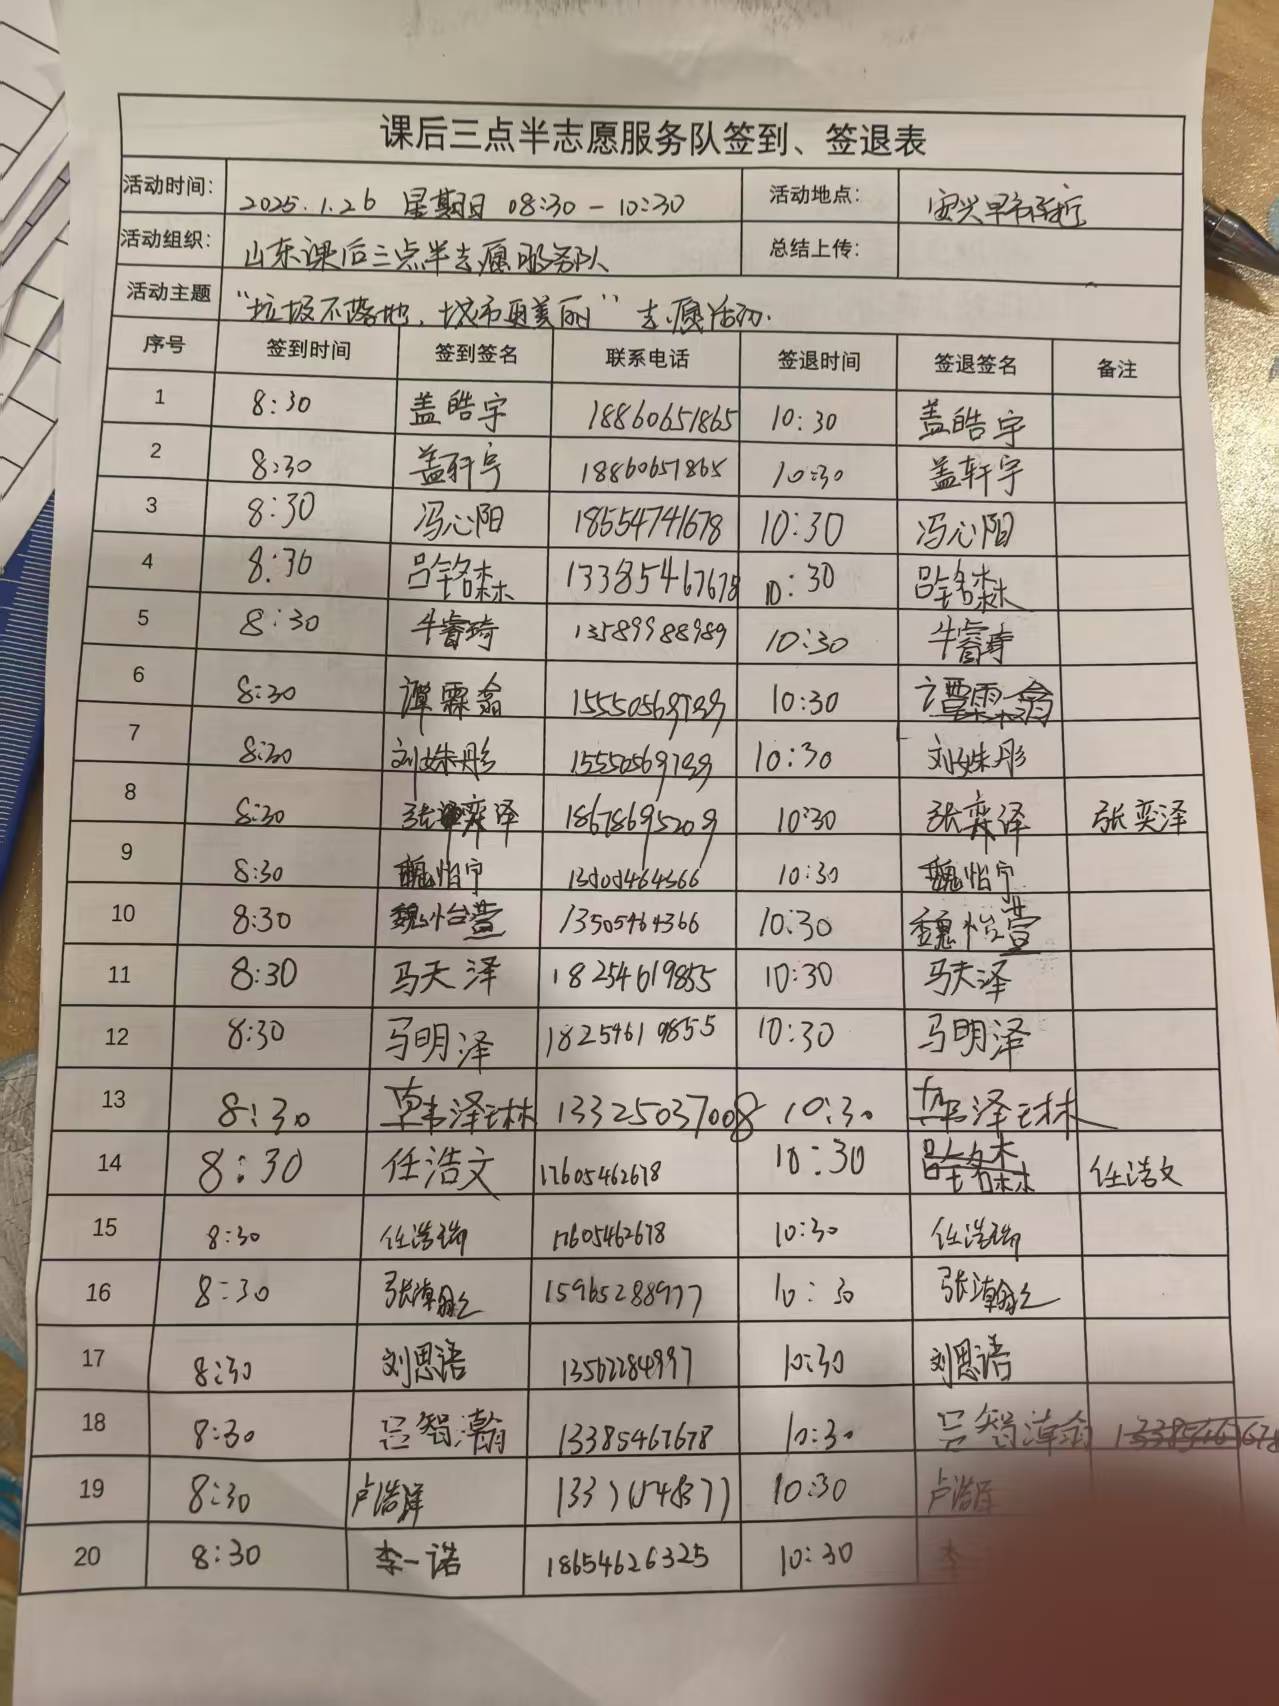 课后三点半志愿服务队签到、签退表
活动时间: 2025.1.26 星期日 08:30-10:30 活动地点: 安兴早市附近
活动组织: 山东课后三点半志愿服务队 总结上传:
活动主题 "垃圾不落地,城市更美丽"志愿活动.
序号 签到时间 签到签名 联系电话 签退时间 签退签名 备注
1 8:30 盖皓宇 18860651865 10:30 盖皓宇
2 8:30 盖轩宇 18860651865 10:30 盖轩宇
3 8:30 冯心阳 18554741678 10:30 冯心阳
4 8:30 吕铭森 13385467678 10:30 吕铭森
5 8:30 牛睿琦 13589988989 10:30 牛睿琦
6 8:30 谭霖翕 10:30
7 8:30 刘姝彤 10:30 刘姝彤
8 8:30 张奕泽 18678695209 10:30 张奕泽 张奕泽
9 8:30 魏怡宁 13505464366 10:30 魏怡宁
10 8:30 魏怡萱 13505464366 10:30 魏怡萱
11 8:30 马天泽 18254619855 10:30 马天泽
12 8:30 马明泽 18254619855 10:30 马明泽
13 8:30 泽琳 13325037008 10:30 泽琳
14 8:30 任浩文 17605462678 10:30 吕铭森 任浩文
15 8:30 任浩瑞 17605462678 10:30 任浩瑞
16 8:30 张瀚 15965288977 10:30 张瀚
17 8:30 刘思语 13562284997 10:30 刘思语
18 8:30 吕智瀚 13385467678 10:30 吕智瀚 13385467678
19 8:30 卢浩洋 10:30 卢浩洋
20 8:30 李一诺 18654626325 10:30 李一